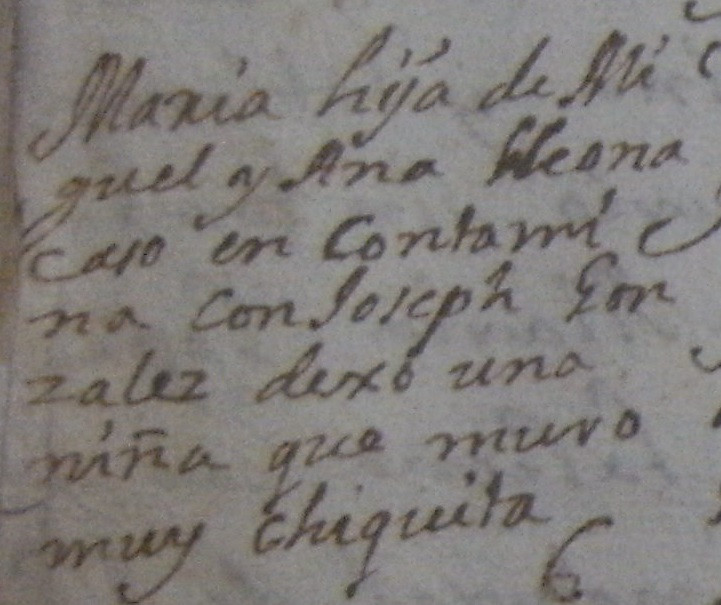 Maria hija de Mi
guel y Ana Lleona
caso en Contami
na con Joseph Gon
zalez dexò una
niña que muro
muy chiquita